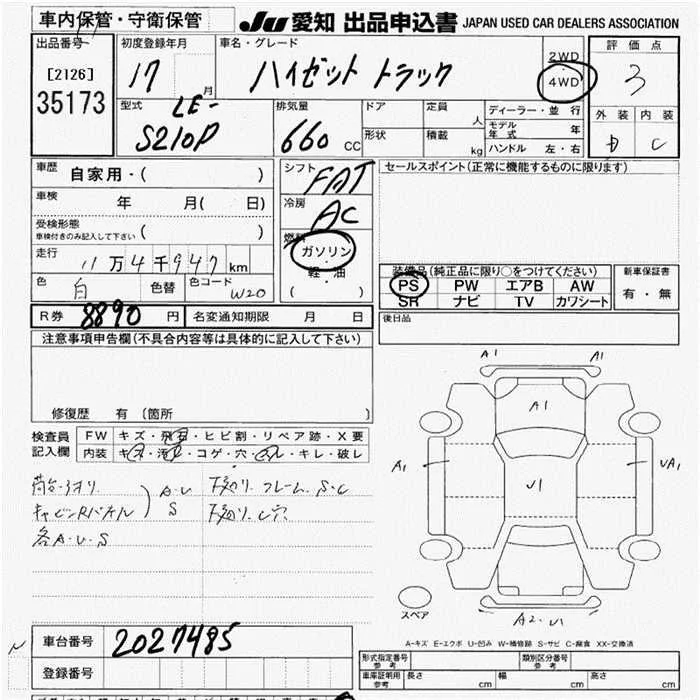 車内保管・守衛保管
Ju 愛知 出品申込書 JAPAN USED CAR DEALERS ASSOCIATION
出品番号
[2126]
35173
初度登録年月
17 月
車名・グレード
ハイゼット トラック
2WD
・
4WD
評価点
3
外装 内装
C
型式
LE-
S210P
排気量
660 CC
ドア
形状
定員 人
積載 kg
ディーラー・並行
モデル年式 年
ハンドル 左・右
車歴
自家用・( )
車検 年 月( 日)
受検形態
車検付きのみ記入して下さい ( )
走行
11万4千947 km
色
白
色替
色コード
W20
シフト
FAT
冷房
AC
燃料
ガソリン
・
軽・油
( )
セールスポイント(正常に機能するものに限ります)
装備品(純正品に限り○をつけてください)
PS PW エアB AW
SR ナビ TV カワシート
新車保証書
有・無
後日品
R券 8890 円
名変通知期限 月 日
注意事項申告欄(不具合内容等は具体的に記入して下さい)
修復歴 有(箇所 )
検査員
記入欄
FW キズ・飛石・ヒビ割・リペア跡・X要
内装 キズ・汚れ・コゲ・穴・・キレ・破レ
A・U
S
下廻り フレーム S・C
下廻り
各A・U・S
A1 A1
A1
A1
U1
UA1
A2・U1
スペア
A-キズ E-エクボ U-凹み W-補修跡 S-サビ C-腐食 XX-交換済
車台番号 2027485
登録番号
N
形式指定番号
参考
類別区分番号
参考
車庫証明用
参考
長さ cm
幅 cm
高さ cm